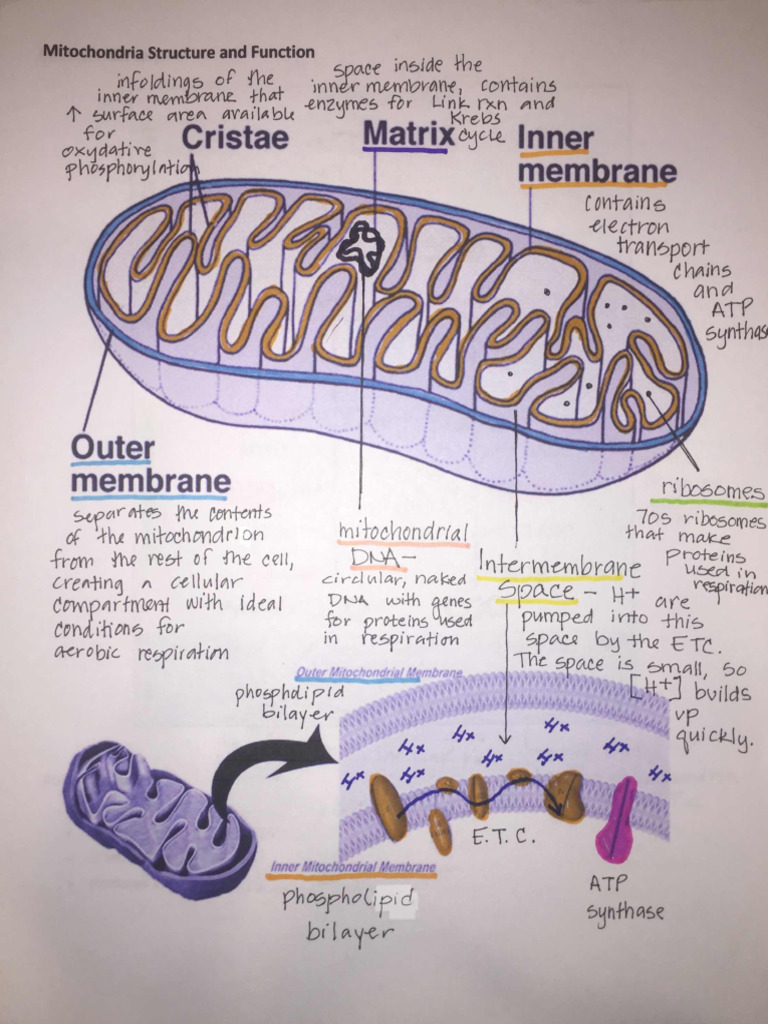 Mitochondria Structure and Function
infoldings of the
inner membrane that
↑ surface area available
for
oxydative
phosphorylation
Cristae
space inside the
inner membrane, contains
enzymes for Link rxn and
Krebs
cycle
Matrix
Inner
membrane
contains
electron
transport
chains
and
ATP
synthase
Outer
membrane
separates the contents
of the mitochondrion
from the rest of the cell,
creating a cellular
compartment with ideal
conditions for
aerobic respiration
mitochondrial
DNA –
circlular, naked
DNA with genes
for proteins used
in respiration
Intermembrane
Space – H+ are
pumped into this
space by the ETC.
The space is small, so
[H+] builds
up
quickly.
ribosomes
70s ribosomes
that make
proteins
used in
respiration
Outer Mitochondrial Membrane
phospholipid
bilayer
E.T.C.
Inner Mitochondrial Membrane
phospholipid
bilayer
ATP
synthase